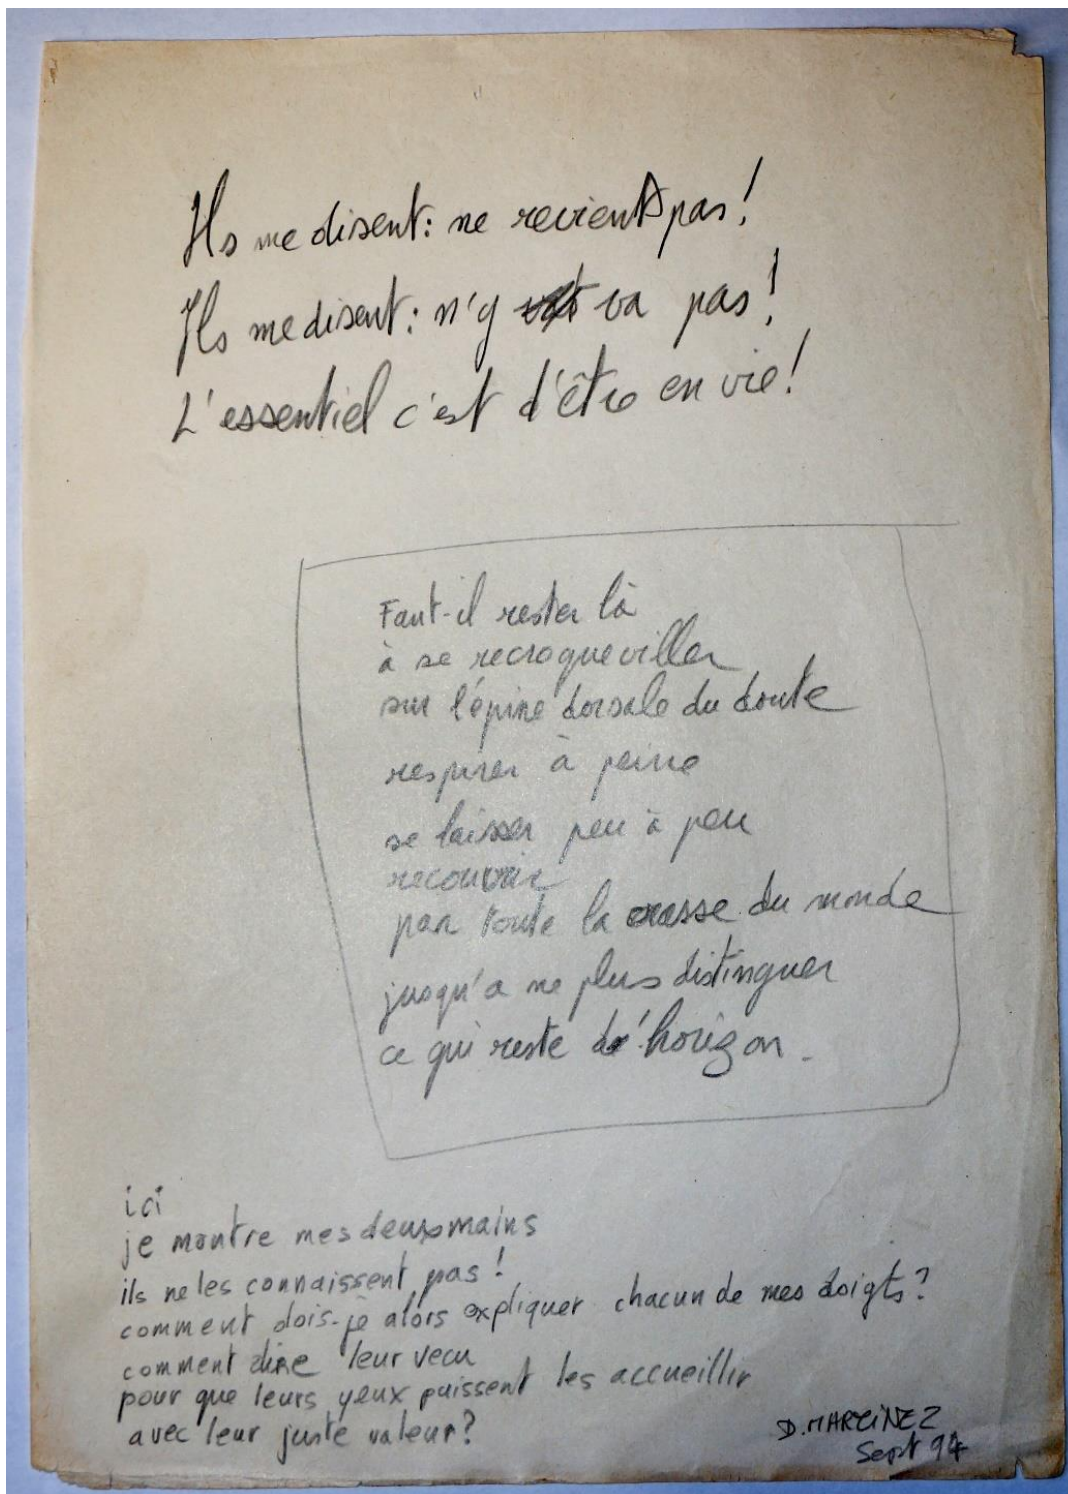 Ils me disent: ne revient pas!
Ils me disent: n'y va pas!
L'essentiel c'est d'être en vie!
Faut-il rester là
à se recroqueviller
sur l'épine dorsale du doute
respirer à peine
se laisser peu à peu
recouvrir
par toute la crasse du monde
jusqu'a ne plus distinguer
ce qui reste d'horizon.
ici
je montre mes deux mains
ils ne les connaissent pas!
comment dois-je alors expliquer chacun de mes doigts?
comment dire leur vecu
pour que leurs yeux puissent les accueillir
avec leur juste valeur?
D. MARTINEZ
Sept 94